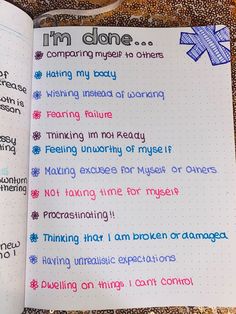 I'm done...
Comparing myself to others
Hating my body
Wishing instead of working
Fearing failure
Thinking im not Ready
Feeling unworthy of myself
Making excuses for Myself or Others
Not taking time for myself
Procrastinating!!
Thinking that I am broken or damaged
Having unrealistic expectations
Dwelling on things I can't control